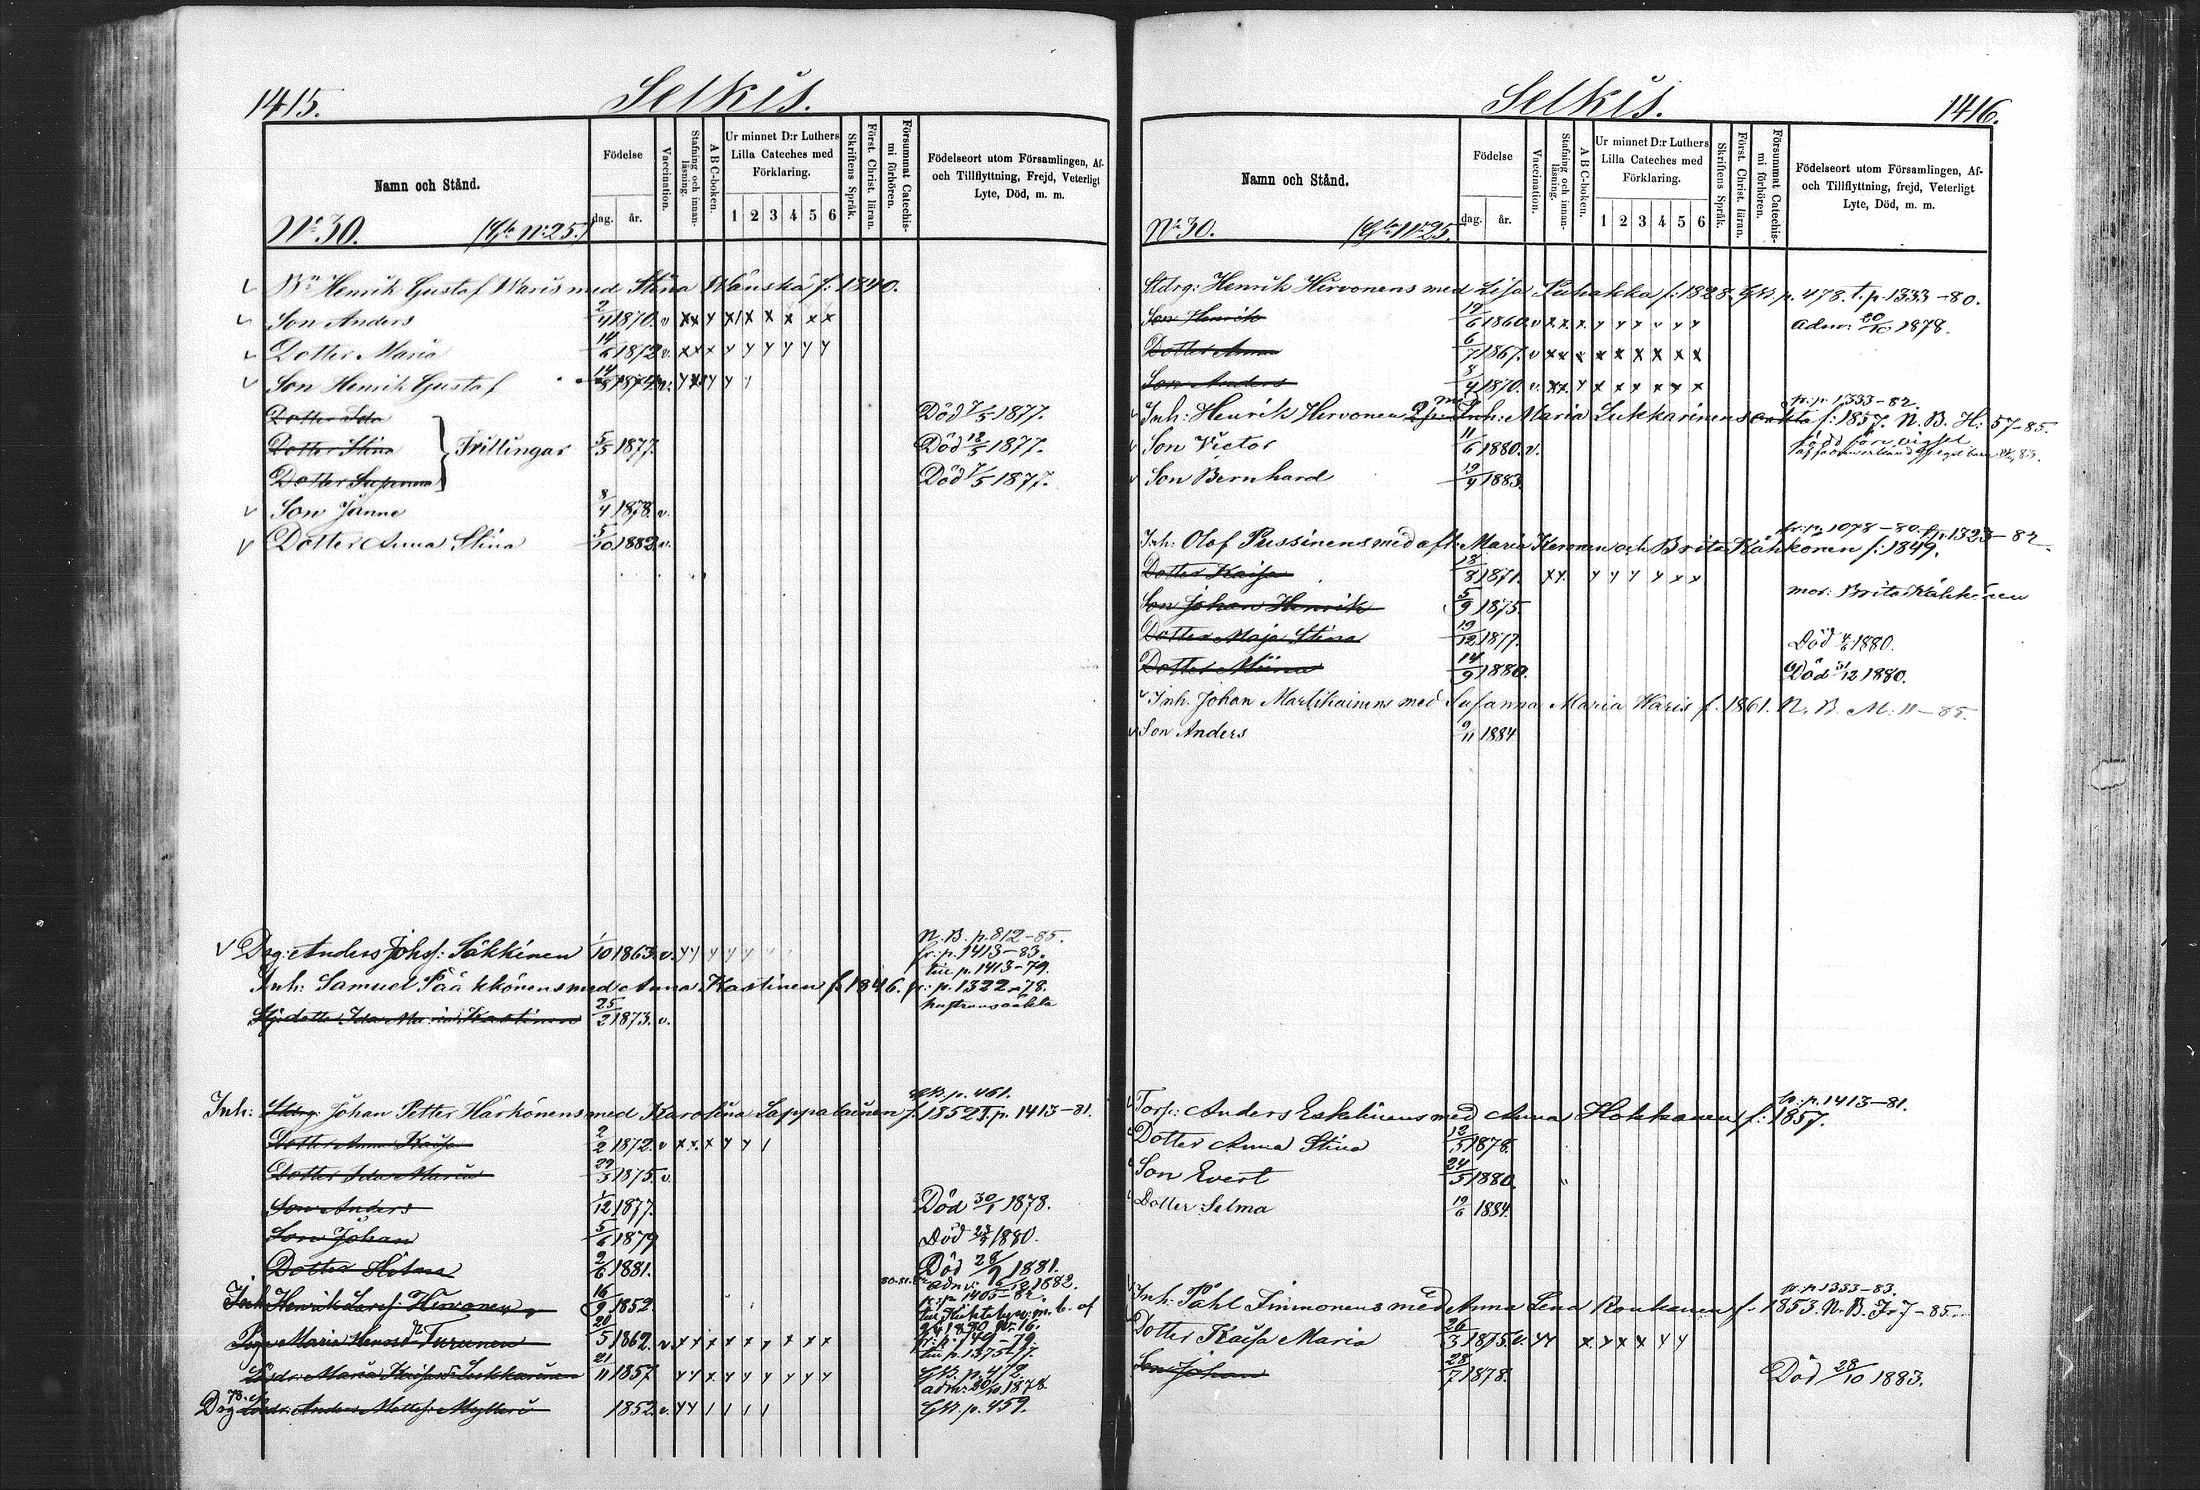 1415.
Selkis.
Namn och Stånd.
Födelse
dag. år.
Vaccination.
Stafning och innanläsning.
A B C-boken.
Ur minnet D:r Luthers Lilla Cateches med Förklaring.
1 2 3 4 5 6
Skriftens Språk.
Först. Christ. läran.
Försummat Catechismi förhören.
Födelseort utom Församlingen, Af- och Tillflyttning, Frejd, Veterligt Lyte, Död, m. m.
No 30. No 25.
Henrik Gustaf Waris med Stina Wänskä f: 1840.
Son Anders 2/4 1870. v
Dotter Maria 14/6 1872 v.
Son Henrik Gustaf 14/ 1874 v.
Dotter Ida Död 7/5 1877.
Dotter Stina Trillingar 5/5 1877. Död 13/5 1877.
Dotter Susanna Död 7/5 1877.
Son Janne 8/4 1878. v.
Dotter Anna Stina 5/10 1882 v.
N. B. p. 812-85.
Drg: Anders Johsf: Säkkinen 1/10 1863. v. fr: p. 1413-83.
till p. 1413-79.
Inh: Samuel Pääkkönens med Anna Kastinen f. 1846. fr: p. 1322-78.
dotter Ida Maria Kastinen 25/2 1873. v. hustruns oäkta
KB. p. 461.
Inh: Johan Petter Härkönens med Karolina Lappalainen f. 1852. T. p. 1413-81.
Dotter Anna Kaisa 2/2 1872. v
Dotter Ida Maria 29/3 1875. v.
Son Anders 1/12 1877. Död 30/1 1878.
Son Johan 5/6 1879 Död 1880.
Dotter 2/6 1881. Död 28/9 1881.
1882.
Inh: Henrik Larsf: Hirvonen 16/9 1852. fr: p. 1405-82.
Pig: Maria Henrsd:r Turunen 20/5 1862. v fr: p. 749-79.
till p. 1375
Maria Kaisa Lukkarinen 21/11 1857 KB. p. 472.
adm: 20/10 1878
Drg Anders Mattsf: Mylleri 1852. v. KB. p. 459.
Selkis.
1416.
Namn och Stånd.
Födelse
dag. år.
Vaccination.
Stafning och innanläsning.
A B C-boken.
Ur minnet D:r Luthers Lilla Cateches med Förklaring.
1 2 3 4 5 6
Skriftens Språk.
Först. Christ. läran.
Försummat Catechismi förhören.
Födelseort utom Församlingen, Af- och Tillflyttning, frejd, Veterligt Lyte, Död, m. m.
No 30. No 25.
Henrik Hirvonens med Lisa Puhakka f: 1828. KB. p. 478. t. p. 1333-80.
Son Henrik 19/6 1860. v adm: 20/10 1878.
Dotter Anna 6/7 1867. v
Son Anders 8/4 1870. v.
fr: p. 1333-82
Inh: Henrik Hirvonen med Maria Lukkarinens oäkta f: 1857. N. B. H: 57-85.
Son Victor 11/6 1880. v. född före vigsel
Son Bernhard 19/4 1883.
fr: p. 1078-80. fr. 1323-82
Inh: Olof Pussinens med afl: Maria Keronen och Brita Kähkönen f: 1849.
Dotter Kaisa 13/8 1871.
Son Johan Henrik 5/9 1875. mor: Brita Kähkönen
Dotter Maja Stina 19/12 1877. Död 1880.
Dotter Miina 14/9 1880. Död 31/12 1880.
Inh: Johan Martikainens med Susanna Maria Waris f. 1861. N. B. M: 11-85.
Son Anders 9/11 1884
fr. p. 1413-81.
Torp: Anders Eskelinens med Anna Hokkanen f: 1857.
Dotter Anna Stina 12/5 1878.
Son Evert 24/5 1880.
Dotter Selma 19/6 1884.
fr. p. 1333-83.
Inh: Påhl Timmonens med Anna Lena Ronkanen f. 1853. N. B. T: 7-85.
Dotter Kaisa Maria 26/3 1875. v.
Son Johan 28/7 1878. Död 28/10 1883.